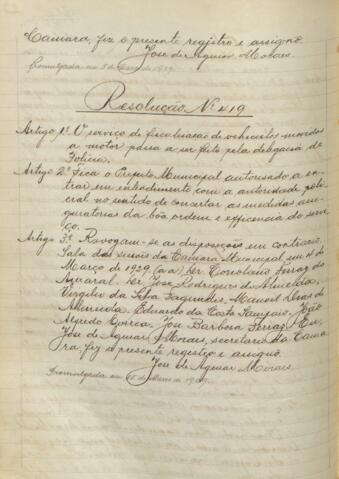 Camara, fiz o presente registro e assigno.
José de Aguiar Moraes.
Promulgada em 5 de Março de 1929.
Resolução Nº 419
Artigo 1º O serviço de fiscalisação de vehiculos movidos
a motor passa a ser feito pela delegacia de
Policia.
Artigo 2º Fica o Prefeito Municipal autorisado a en-
trar em entendimento com a autoridade poli-
cial no sentido de concertar as medidas asse-
guratorias da bôa ordem e efficiencia do servi-
ço.
Artigo 3º Revogam-se as disposições em contrario.
Sala das sessões da Camara Municipal em 4 de
Março de 1929. (a a) Dr. Coriolano Ferraz do
Amaral. Dr. José Rodrigues de Almeida,
Virgilio da Silva Fagundes, Manoel Dias de
Almeida, Eduardo da Costa Sampaio, João
Alfredo Correa, José Barbosa Ferraz. Eu,
José de Aguiar Moraes, secretario da Cama-
ra, fiz o presente registro e assigno.
José de Aguiar Moraes.
Promulgada em 15 de Março de 1929.